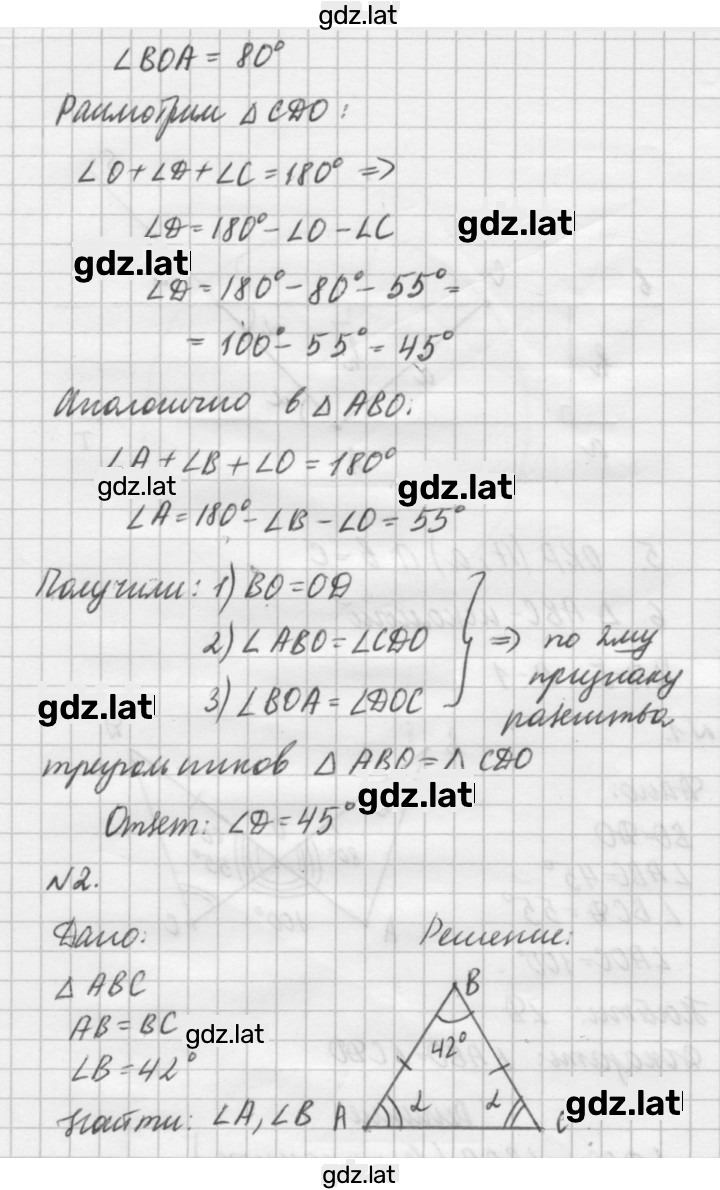 gdz.lat
∠BOA = 80°
Рассмотрим △ CDO:
∠O + ∠D + ∠C = 180° =>
∠D = 180° - ∠O - ∠C
gdz.lat
gdz.lat
∠D = 180° - 80° - 55° =
= 100° - 55° = 45°
Аналогично в △ ABO:
∠A + ∠B + ∠O = 180°
gdz.lat
gdz.lat
∠A = 180° - ∠B - ∠O = 55°
Получили: 1) BO = OD
2) ∠ABO = ∠CDO => по 2му
признаку
3) ∠BOA = ∠DOC
gdz.lat
равенства
треугольников △ ABO = △ CDO
gdz.lat
Ответ: ∠D = 45°
N2.
Дано: Решение:
△ ABC
B
AB = BC
gdz.lat
42°
∠B = 42°
Найти: ∠A, ∠B
A
α α
C
gdz.lat
gdz.lat